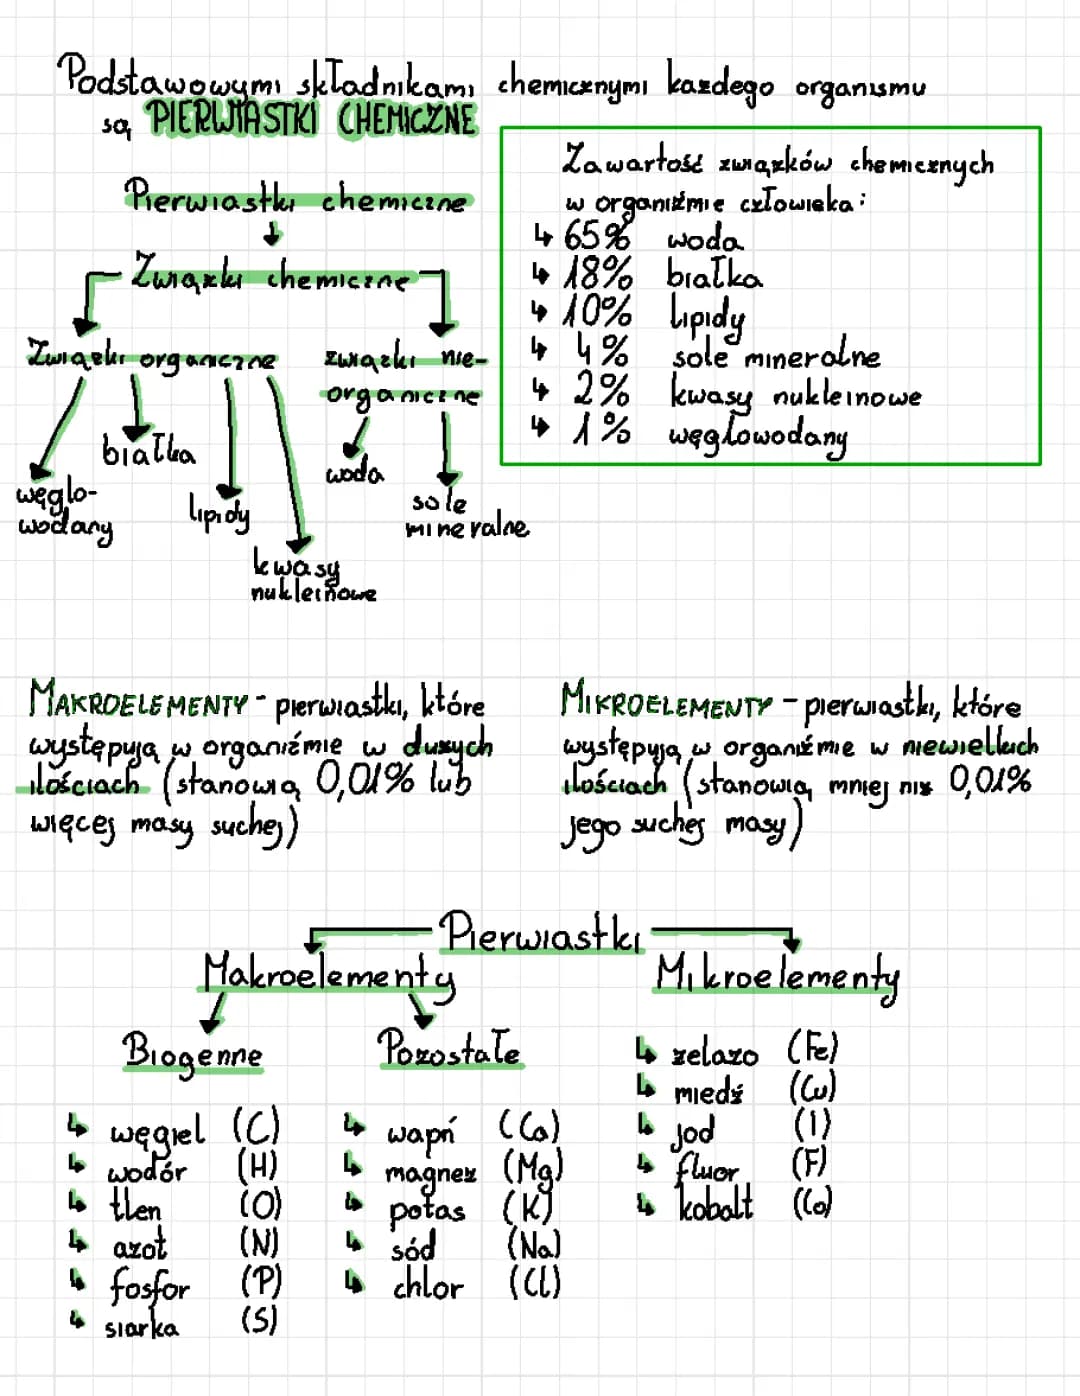 Podstawowymi składnikami chemicznymi każdego organismu
są PIERWIASTKI CHEMICZNE
Pierwiastki chemiczne
Związki chemiczne
Związki organiczne
związki nie-
organiczne
białka
woda
węglo-
wodany
lipidy
sole
mineralne
kwasy
nukleinowe
Zawartość związków chemicznych
w organiźmie człowieka:
↳ 65% woda
↳ 18% białka
↳ 10% lipidy
↳ 4% sole mineralne
↳ 2% kwasy nukleinowe
↳ 1% węglowodany
MAKROELEMENTY - pierwiastki, które
występują w organiźmie w dużych
ilościach (stanowią 0,01% lub
więcej masy suchej)
MIKROELEMENTY - pierwiastki, które
występują w organiźmie w niewielkich
ilościach (stanowią mniej niż 0,01%
jego suchej masy)
Pierwiastki
Makroelementy
Mikroelementy
Biogenne
Pozostałe
↳ węgiel (C)
↳ wodór (H)
↳ tlen (O)
↳ azot (N)
↳ fosfor (P)
↳ siarka (S)
↳ wapń (Ca)
↳ magnez (Mg)
↳ potas (K)
↳ sód (Na)
↳ chlor (Cl)
↳ żelazo (Fe)
↳ miedź (Cu)
↳ jod (I)
↳ fluor (F)
↳ kobalt (Co)